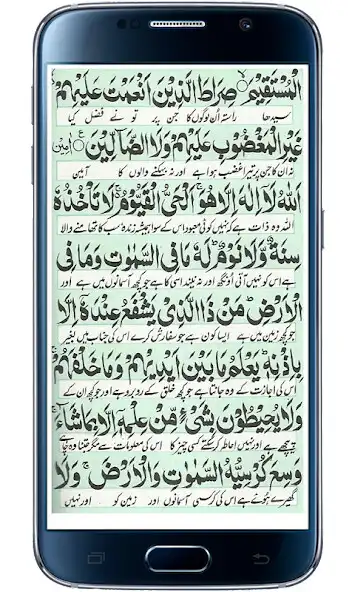 الْمُسْتَقِيْمَ ۙ صِرَاطَ الَّذِيْنَ اَنْعَمْتَ عَلَيْهِمْ
سیدھا راستہ اُن لوگوں کا جن پر تو نے فضل کیا
غَيْرِ الْمَغْضُوْبِ عَلَيْهِمْ وَلَا الضَّآلِّيْنَ ۧ اٰمِيْن
نہ ان کا جن پر تیرا غضب ہوا ہے اور نہ بہکنے والوں کا آمین
اَللّٰهُ لَآ اِلٰهَ اِلَّا هُوَ ۚ اَلْحَيُّ الْقَيُّوْمُ ۚ لَا تَاْخُذُهٗ
اللہ وہ ذات ہے کہ نہیں کوئی معبود اس کے سوا ہمیشہ زندہ سب کا تھامنے والا
سِنَةٌ وَّلَا نَوْمٌ ؕ لَهٗ مَا فِي السَّمٰوٰتِ وَمَا فِي
ہے اس کو نہیں آتی اُونگھ اور نہ نیند اسی کا ہے جو کچھ آسمانوں میں ہے اور
الْاَرْضِ ؕ مَنْ ذَا الَّذِيْ يَشْفَعُ عِنْدَهٗٓ اِلَّا
جو کچھ زمین میں ہے ایسا کون ہے جو سفارش کرے اس کی جناب میں بغیر
بِاِذْنِهٖ ؕ يَعْلَمُ مَا بَيْنَ اَيْدِيْهِمْ وَمَا خَلْفَهُمْ ۚ
اس کی اجازت کے وہ جانتا ہے جو کچھ خلق کے روبرو ہے اور جو کچھ ان کے
وَلَا يُحِيْطُوْنَ بِشَيْءٍ مِّنْ عِلْمِهٖٓ اِلَّا بِمَا شَآءَ ۚ
پیچھے ہے اور نہیں احاطہ کر سکتے کسی چیز کا اس کی معلومات سے مگر جتنا وہ چاہے
وَسِعَ كُرْسِيُّهُ السَّمٰوٰتِ وَالْاَرْضَ ۚ وَلَا
گھیرے ہوئے ہے اس کی کرسی آسمانوں اور زمین کو اور نہیں